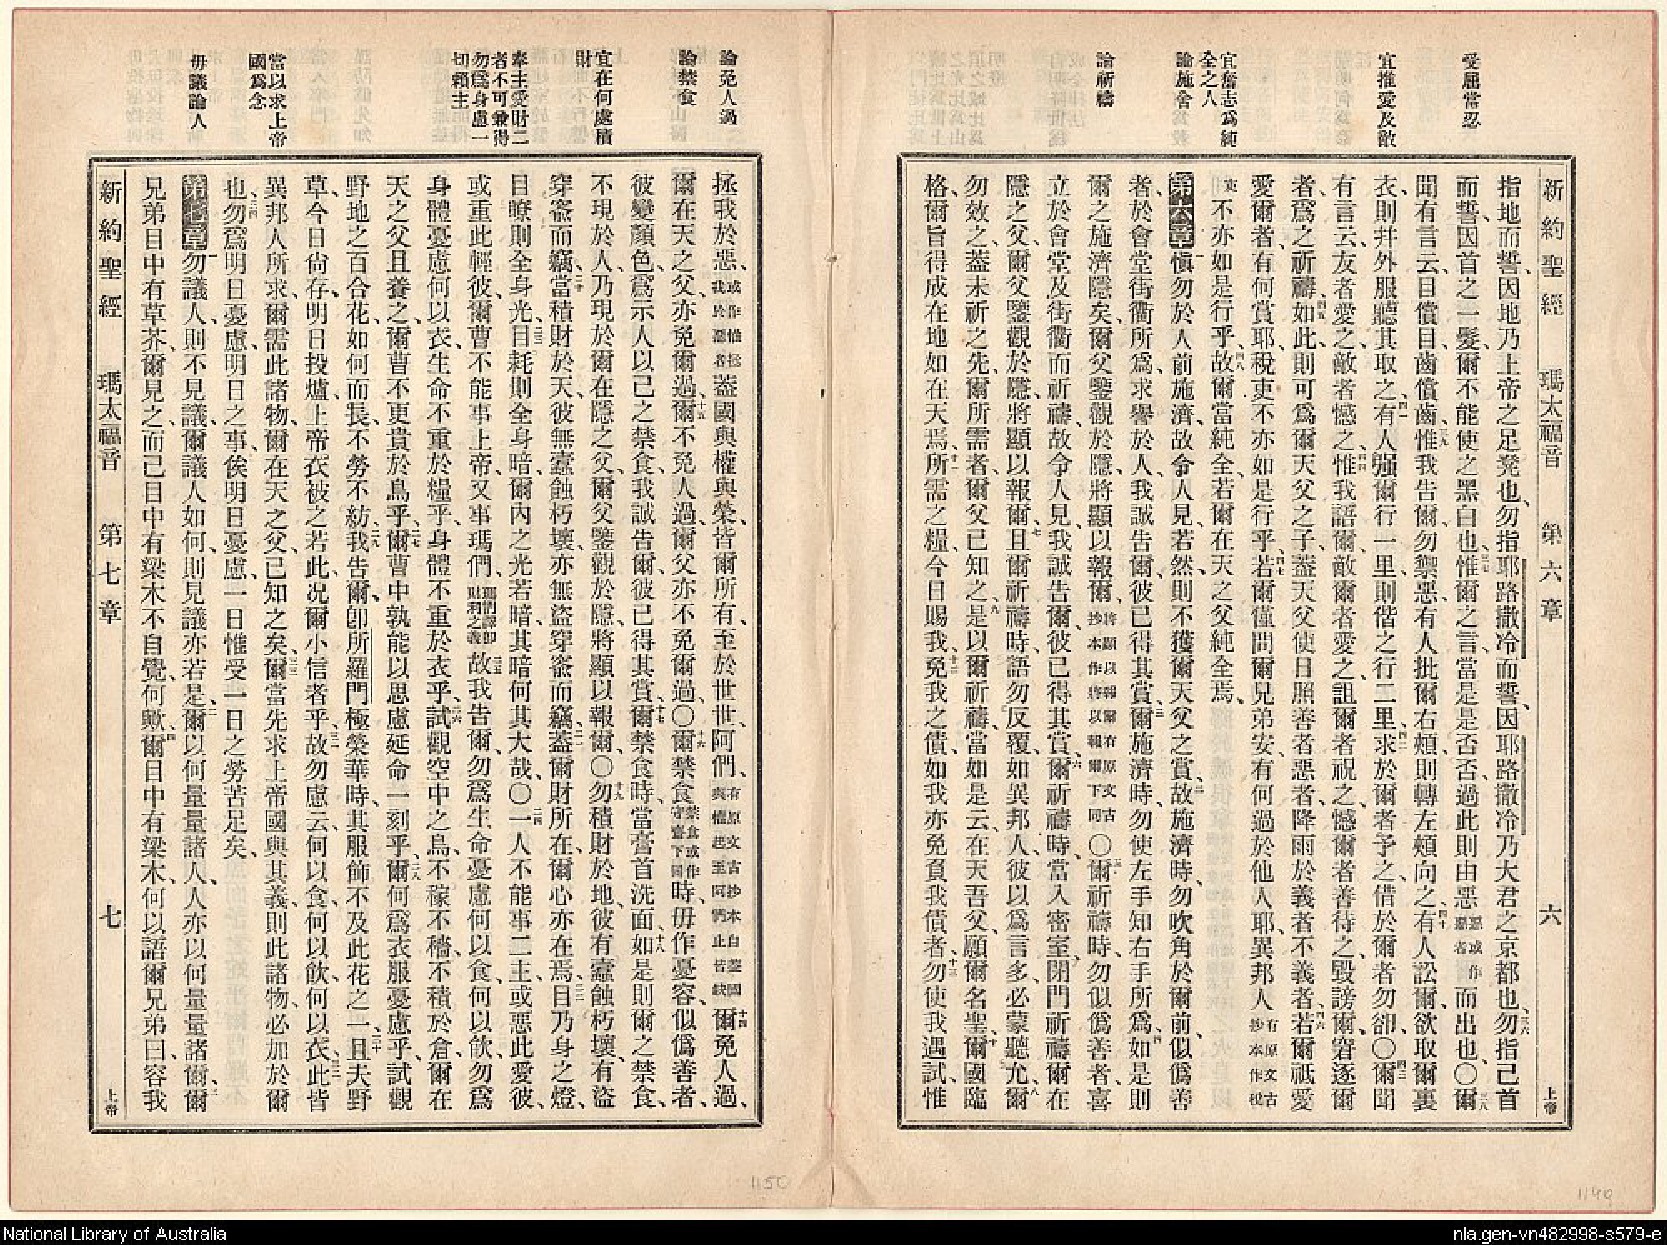 受屈當忍
宜推愛及敵
宜奮志爲純
全之人
論施舍
論祈禱
新約聖經 瑪太福音 第六章 六 上帝
指地而誓、因地乃上帝之足凳也、勿指耶路撒冷而誓、因耶路撒冷乃大君之京都也、三六勿指己首
而誓、因首之一髮、爾不能使之黑白也、三七惟爾之言、當是是否否、過此則由惡惡或作惡者而出也、〇三八爾
聞有言云、目償目、齒償齒、三九惟我告爾、勿禦惡、有人批爾右頰、則轉左頰向之、四十有人訟爾、欲取爾裏
衣、則幷外服聽其取之、四一有人强爾行一里、則偕之行二里、四二求於爾者予之、借於爾者勿卻、〇四三爾聞
有言云、友者愛之、敵者憾之、四四惟我語爾、敵爾者愛之、詛爾者祝之、憾爾者善待之、毀謗爾、窘逐爾
者、爲之祈禱、四五如此、則可爲爾天父之子、蓋天父使日照善者惡者、降雨於義者不義者、四六若爾祇愛
愛爾者、有何賞耶、稅吏不亦如是行乎、四七若爾僅問爾兄弟安、有何過於他人耶、異邦人有原文古抄本作稅
吏不亦如是行乎、四八故爾當純全、若爾在天之父純全焉、
第六章一愼勿於人前施濟、故令人見、若然、則不獲爾天父之賞、二故施濟時、勿吹角於爾前、似僞善
者、於會堂街衢所爲、求譽於人、我誠告爾、彼已得其賞、三爾施濟時、勿使左手知右手所爲、四如是則
爾之施濟隱矣、爾父鑒觀於隱、將顯以報爾、將顯以報爾有原文古抄本作將以報爾下同〇五爾祈禱時、勿似僞善者、喜
立於會堂及街衢而祈禱、故令人見、我誠告爾、彼已得其賞、六爾祈禱時、當入密室、閉門祈禱爾在
隱之父、爾父鑒觀於隱、將顯以報爾、七且爾祈禱時、語勿反覆如異邦人、彼以爲言多必蒙聽允、八爾
勿效之、蓋未祈之先、爾所需者、爾父已知之、九是以爾祈禱、當如是云、在天吾父、願爾名聖、十爾國臨
格、爾旨得成、在地如在天焉、十一所需之糧、今日賜我、十二免我之債、如我亦免負我債者、十三勿使我遇試、惟
論免人過
論禁食
宜在何處積
財
奉主愛財二
者不可兼得
勿爲身慮一
切賴主
當以求上帝
國爲念
毋議論人
拯我於惡、或作惟拯我於惡者蓋國與權與榮、皆爾所有、至於世世、阿們、有原文古抄本自蓋國與權起至阿們止皆缺十四爾免人過、
爾在天之父、亦免爾過、十五爾不免人過、爾父亦不免爾過、〇十六爾禁食禁食或作守齋下同時、毋作憂容、似僞善者、
彼變顏色、爲示人以己之禁食、我誠告爾、彼已得其賞、十七爾禁食時、當膏首洗面、十八如是則爾之禁食、
不現於人、乃現於爾在隱之父、爾父鑒觀於隱、將顯以報爾、〇十九勿積財於地、彼有蠹蝕朽壞、有盜
穿窬而竊、二十當積財於天、彼無蠹蝕朽壞、亦無盜穿窬而竊、二一蓋爾財所在、爾心亦在焉、二二目乃身之燈、
目瞭則全身光、二三目眊則全身暗、爾內之光若暗、其暗何其大哉、〇二四一人不能事二主、或惡此愛彼、
或重此輕彼、爾曹不能事上帝、又事瑪們、瑪們譯卽財利之義二五故我告爾、勿爲生命憂慮、何以食、何以飮、勿爲
身體憂慮、何以衣、生命不重於糧乎、身體不重於衣乎、二六試觀空中之鳥、不稼不穡、不積於倉、爾在
天之父且養之、爾曹不更貴於鳥乎、二七爾曹中孰能以思慮延命一刻乎、二八爾何爲衣服憂慮乎、試觀
野地之百合花、如何而長、不勞不紡、二九我告爾、卽所羅門極榮華時、其服飾不及此花之一、三十且夫野
草、今日尙存、明日投爐、上帝衣被之若此、况爾小信者乎、三一故勿慮云、何以食、何以飮、何以衣、三二此皆
異邦人所求、爾需此諸物、爾在天之父已知之矣、三三爾當先求上帝國與其義、則此諸物、必加於爾
也、三四勿爲明日憂慮、明日之事、俟明日憂慮、一日惟受一日之勞苦足矣、
第七章一勿議人、則不見議、爾議人如何、則見議亦若是、二爾以何量量諸人、人亦以何量量諸爾、三爾
兄弟目中有草芥、爾見之、而己目中有梁木、不自覺、何歟、四爾目中有梁木、何以語爾兄弟曰、容我
新約聖經 瑪太福音 第七章 七 上帝
1150
1149
National Library of Australia
nla.gen-vn482998-s579-e